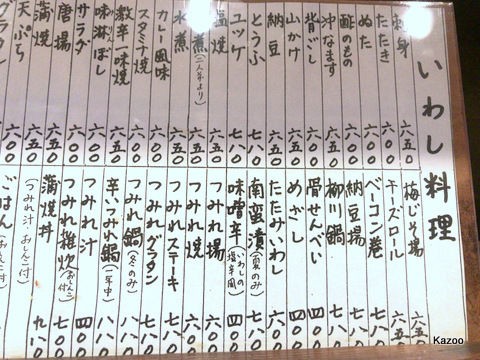 いわし料理
刺身 六五〇
たたき 六〇〇
ぬた 六〇〇
酢のもの 六五〇
沖なます 六〇〇
背ごし 六五〇
山かけ 六五〇
納豆 六〇〇
とうふ 七八〇
ユッケ 七八〇
塩焼 六〇〇
煮(二人前より) 六五〇
水煮 六五〇
カレー風味 六〇〇
スタミナ焼 六五〇
激辛一味焼 六五〇
味淋ぼし 六〇〇
サラダ 六〇〇
唐揚 六〇〇
蒲焼 六五〇
天ぷら 六五〇
グラタン 六〇〇
梅じそ揚 六五〇
チーズロール 六五〇
ベーコン巻 七八〇
納豆揚 七八〇
柳川鍋 七八〇
骨せんべい 四〇〇
めざし 四〇〇
たたみいわし 五〇〇
南蛮漬(夏のみ) 七八〇
味噌辛(いわしの塩辛風) 四〇〇
つみれ揚 六〇〇
つみれ焼 六〇〇
つみれステーキ 七八〇
つみれグラタン 七八〇
つみれ鍋(冬のみ) 八八〇
辛いつみれ鍋(一年中) 八八〇
つみれ汁 四〇〇
つみれ雑炊(おしんこ付) 七〇〇
蒲焼丼 九八
(つみれ汁、おしんこ付)
ごはん
Kazoo